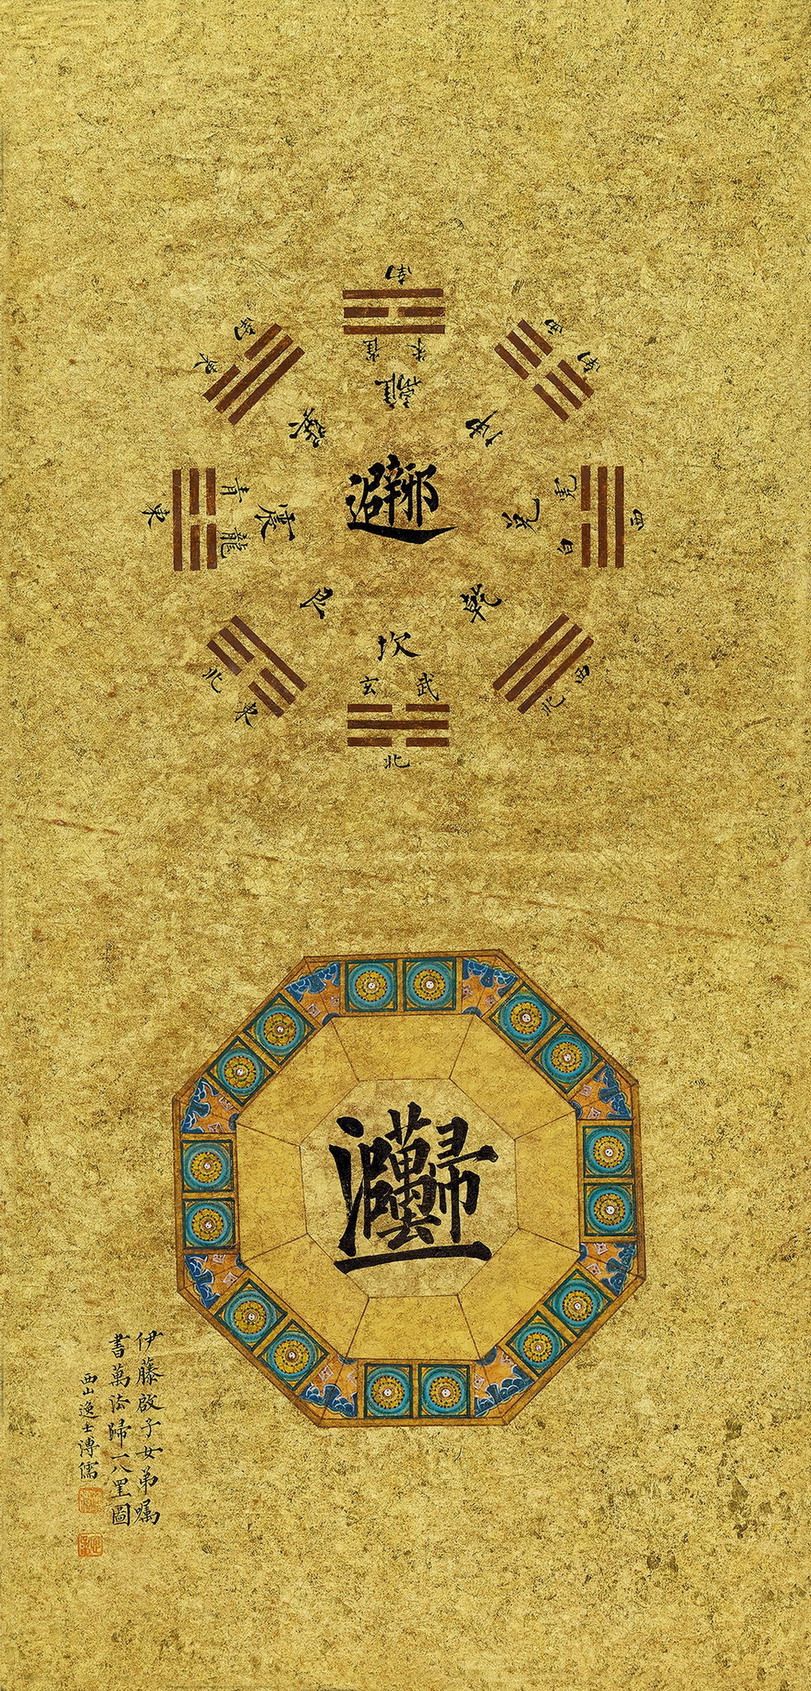 南
朱雀
離
東南
巽
西南
坤
東
青龍
震
避邪
兌
白虎
西
東北
艮
西北
乾
坎
玄武
北
萬法歸一
伊藤啟子女弟囑
書萬法歸一八罣圖
西山逸士溥儒